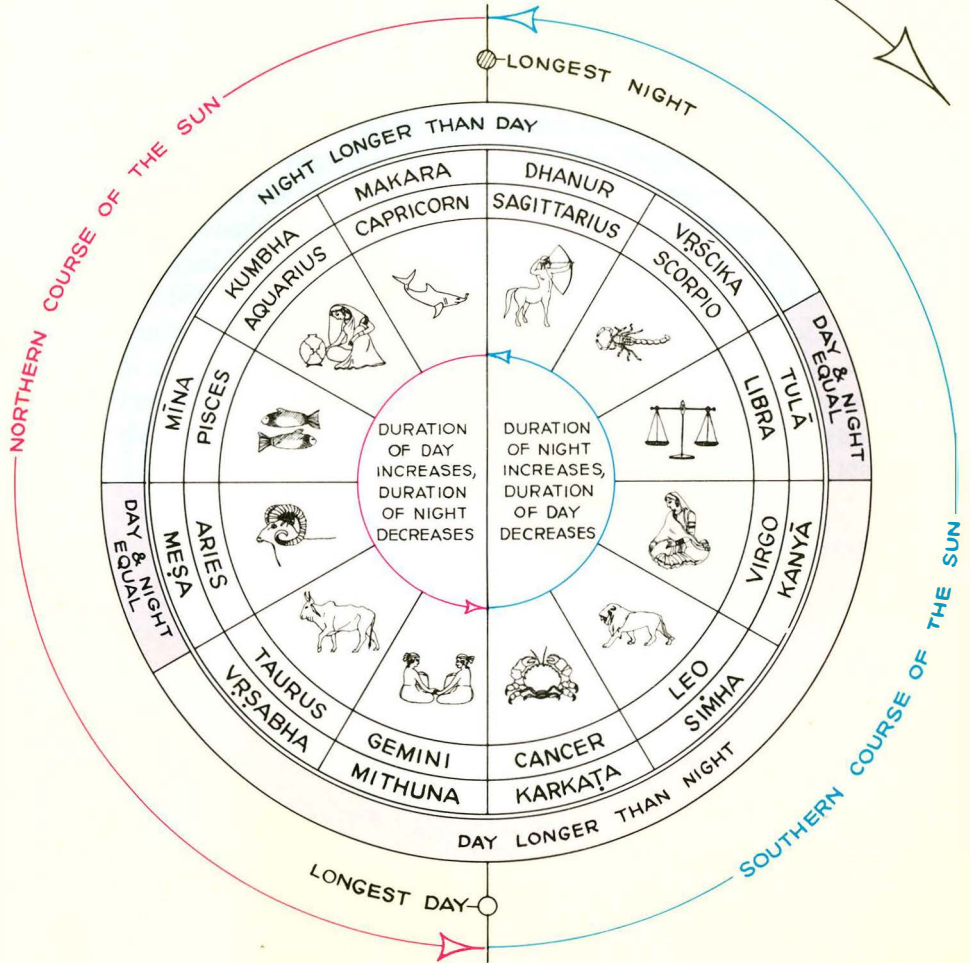 LONGEST NIGHT
NORTHERN COURSE OF THE SUN
SOUTHERN COURSE OF THE SUN
NIGHT LONGER THAN DAY
DAY & NIGHT
EQUAL
DAY LONGER THAN NIGHT
DAY & NIGHT
EQUAL
MAKARA
CAPRICORN
DHANUR
SAGITTARIUS
VṚŚCIKA
SCORPIO
TULĀ
LIBRA
KANYĀ
VIRGO
SIṀHA
LEO
KARKAṬA
CANCER
MITHUNA
GEMINI
VṚṢABHA
TAURUS
MEṢA
ARIES
MĪNA
PISCES
KUMBHA
AQUARIUS
DURATION
OF DAY
INCREASES,
DURATION
OF NIGHT
DECREASES
DURATION
OF NIGHT
INCREASES,
DURATION
OF DAY
DECREASES
LONGEST DAY